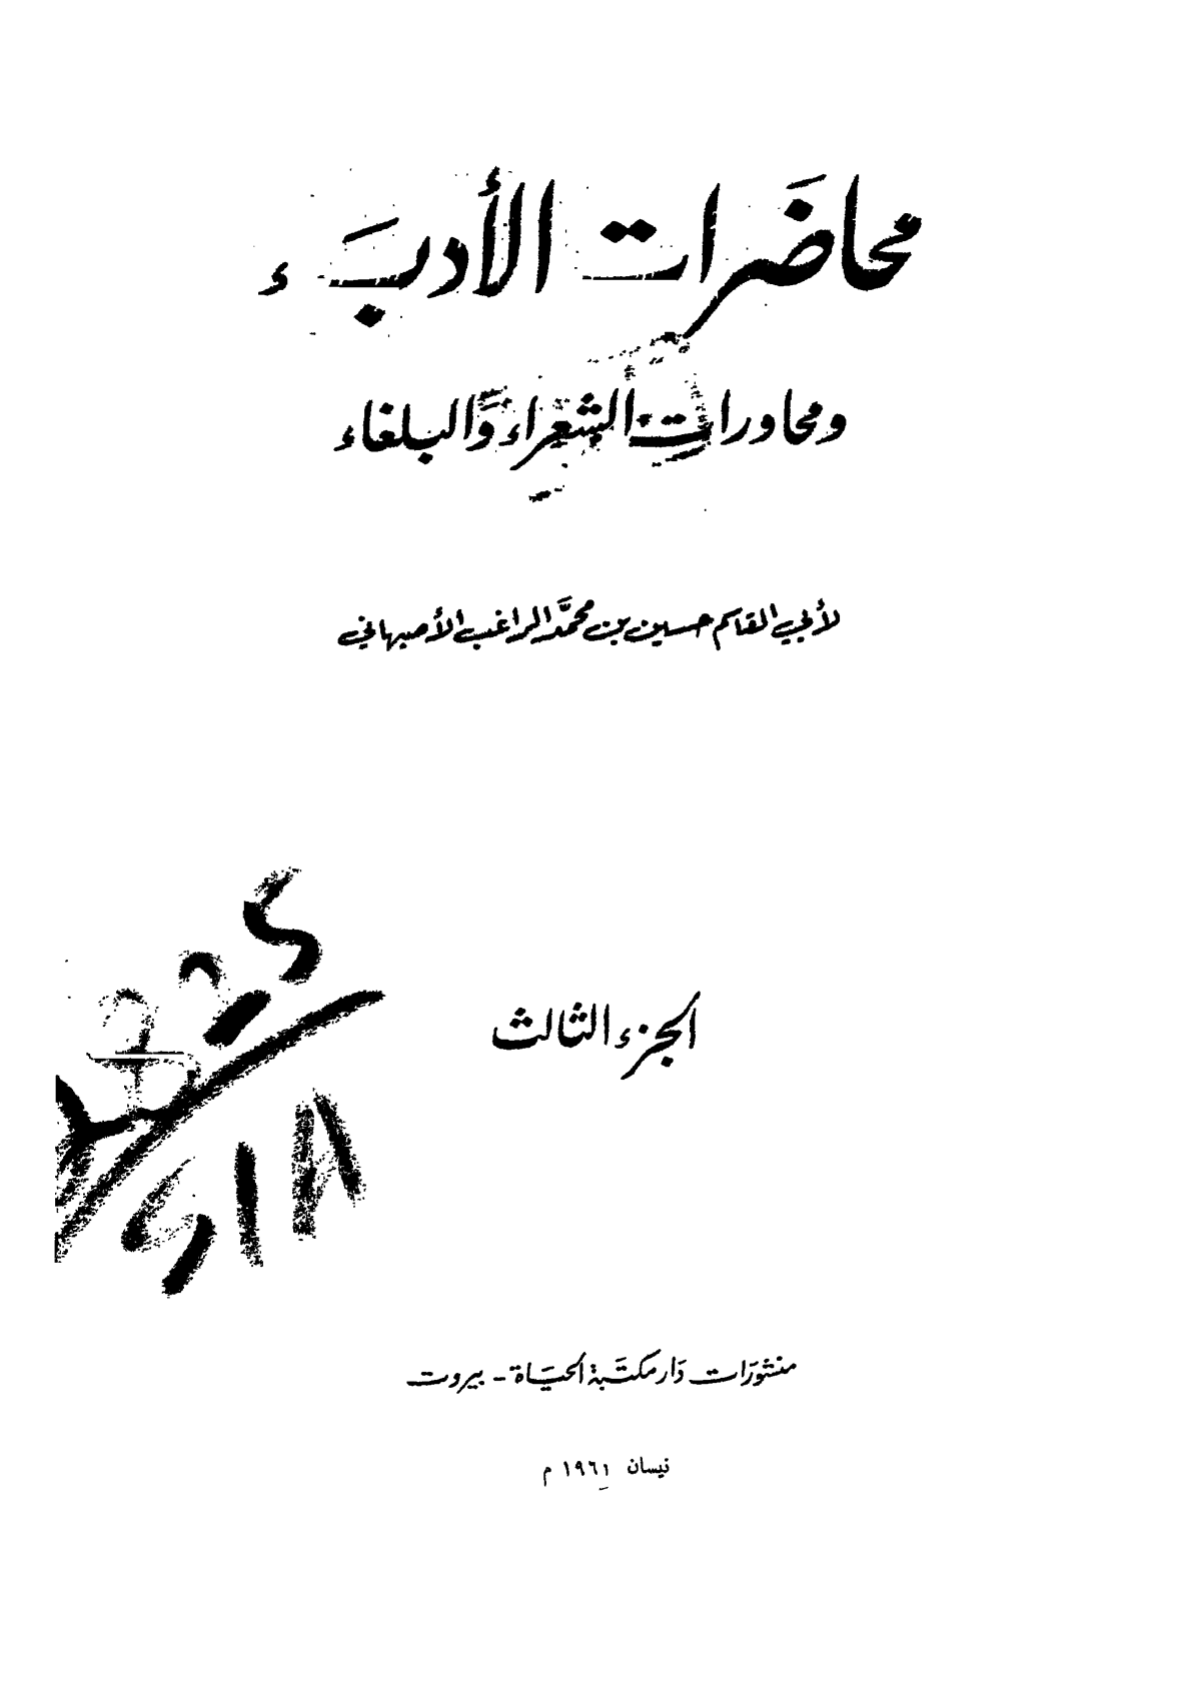 محاضرات الأدباء
ومحاورات الشعراء والبلغاء
لأبي القاسم حسين بن محمد الراغب الأصبهاني
الجزء الثالث
منشورات دار مكتبة الحياة - بيروت
نيسان ١٩٦١ م